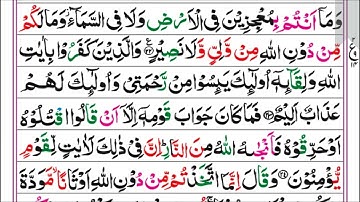 وَمَاۤ اَنۡتُمۡ بِمُعۡجِزِيۡنَ فِى الۡاَرۡضِ وَلَا فِى السَّمَآءِ‌ۚ وَمَا لَـكُمۡ
مِّنۡ دُوۡنِ اللّٰهِ مِنۡ وَّلِىٍّ وَّلَا نَصِيۡرٍ ۞ وَالَّذِيۡنَ كَفَرُوۡا بِاٰيٰتِ
اللّٰهِ وَلِقَآٮِٕهٖۤ اُولٰٓٮِٕكَ يَٮِٕسُوۡا مِنۡ رَّحۡمَتِىۡ وَاُولٰٓٮِٕكَ لَهُمۡ
عَذَابٌ اَلِيۡمٌ ۞ فَمَا كَانَ جَوَابَ قَوۡمِهٖۤ اِلَّاۤ اَنۡ قَالُوا اقۡتُلُوۡهُ
اَوۡ حَرِّقُوۡهُ فَاَنۡجٰٮهُ اللّٰهُ مِنَ النَّارِ‌ؕ اِنَّ فِىۡ ذٰ لِكَ لَاٰيٰتٍ لِّقَوۡمٍ
يُّؤۡمِنُوۡنَ ۞ وَقَالَ اِنَّمَا اتَّخَذۡتُمۡ مِّنۡ دُوۡنِ اللّٰهِ اَوۡثَانًا ۙ مَّوَدَّةَ